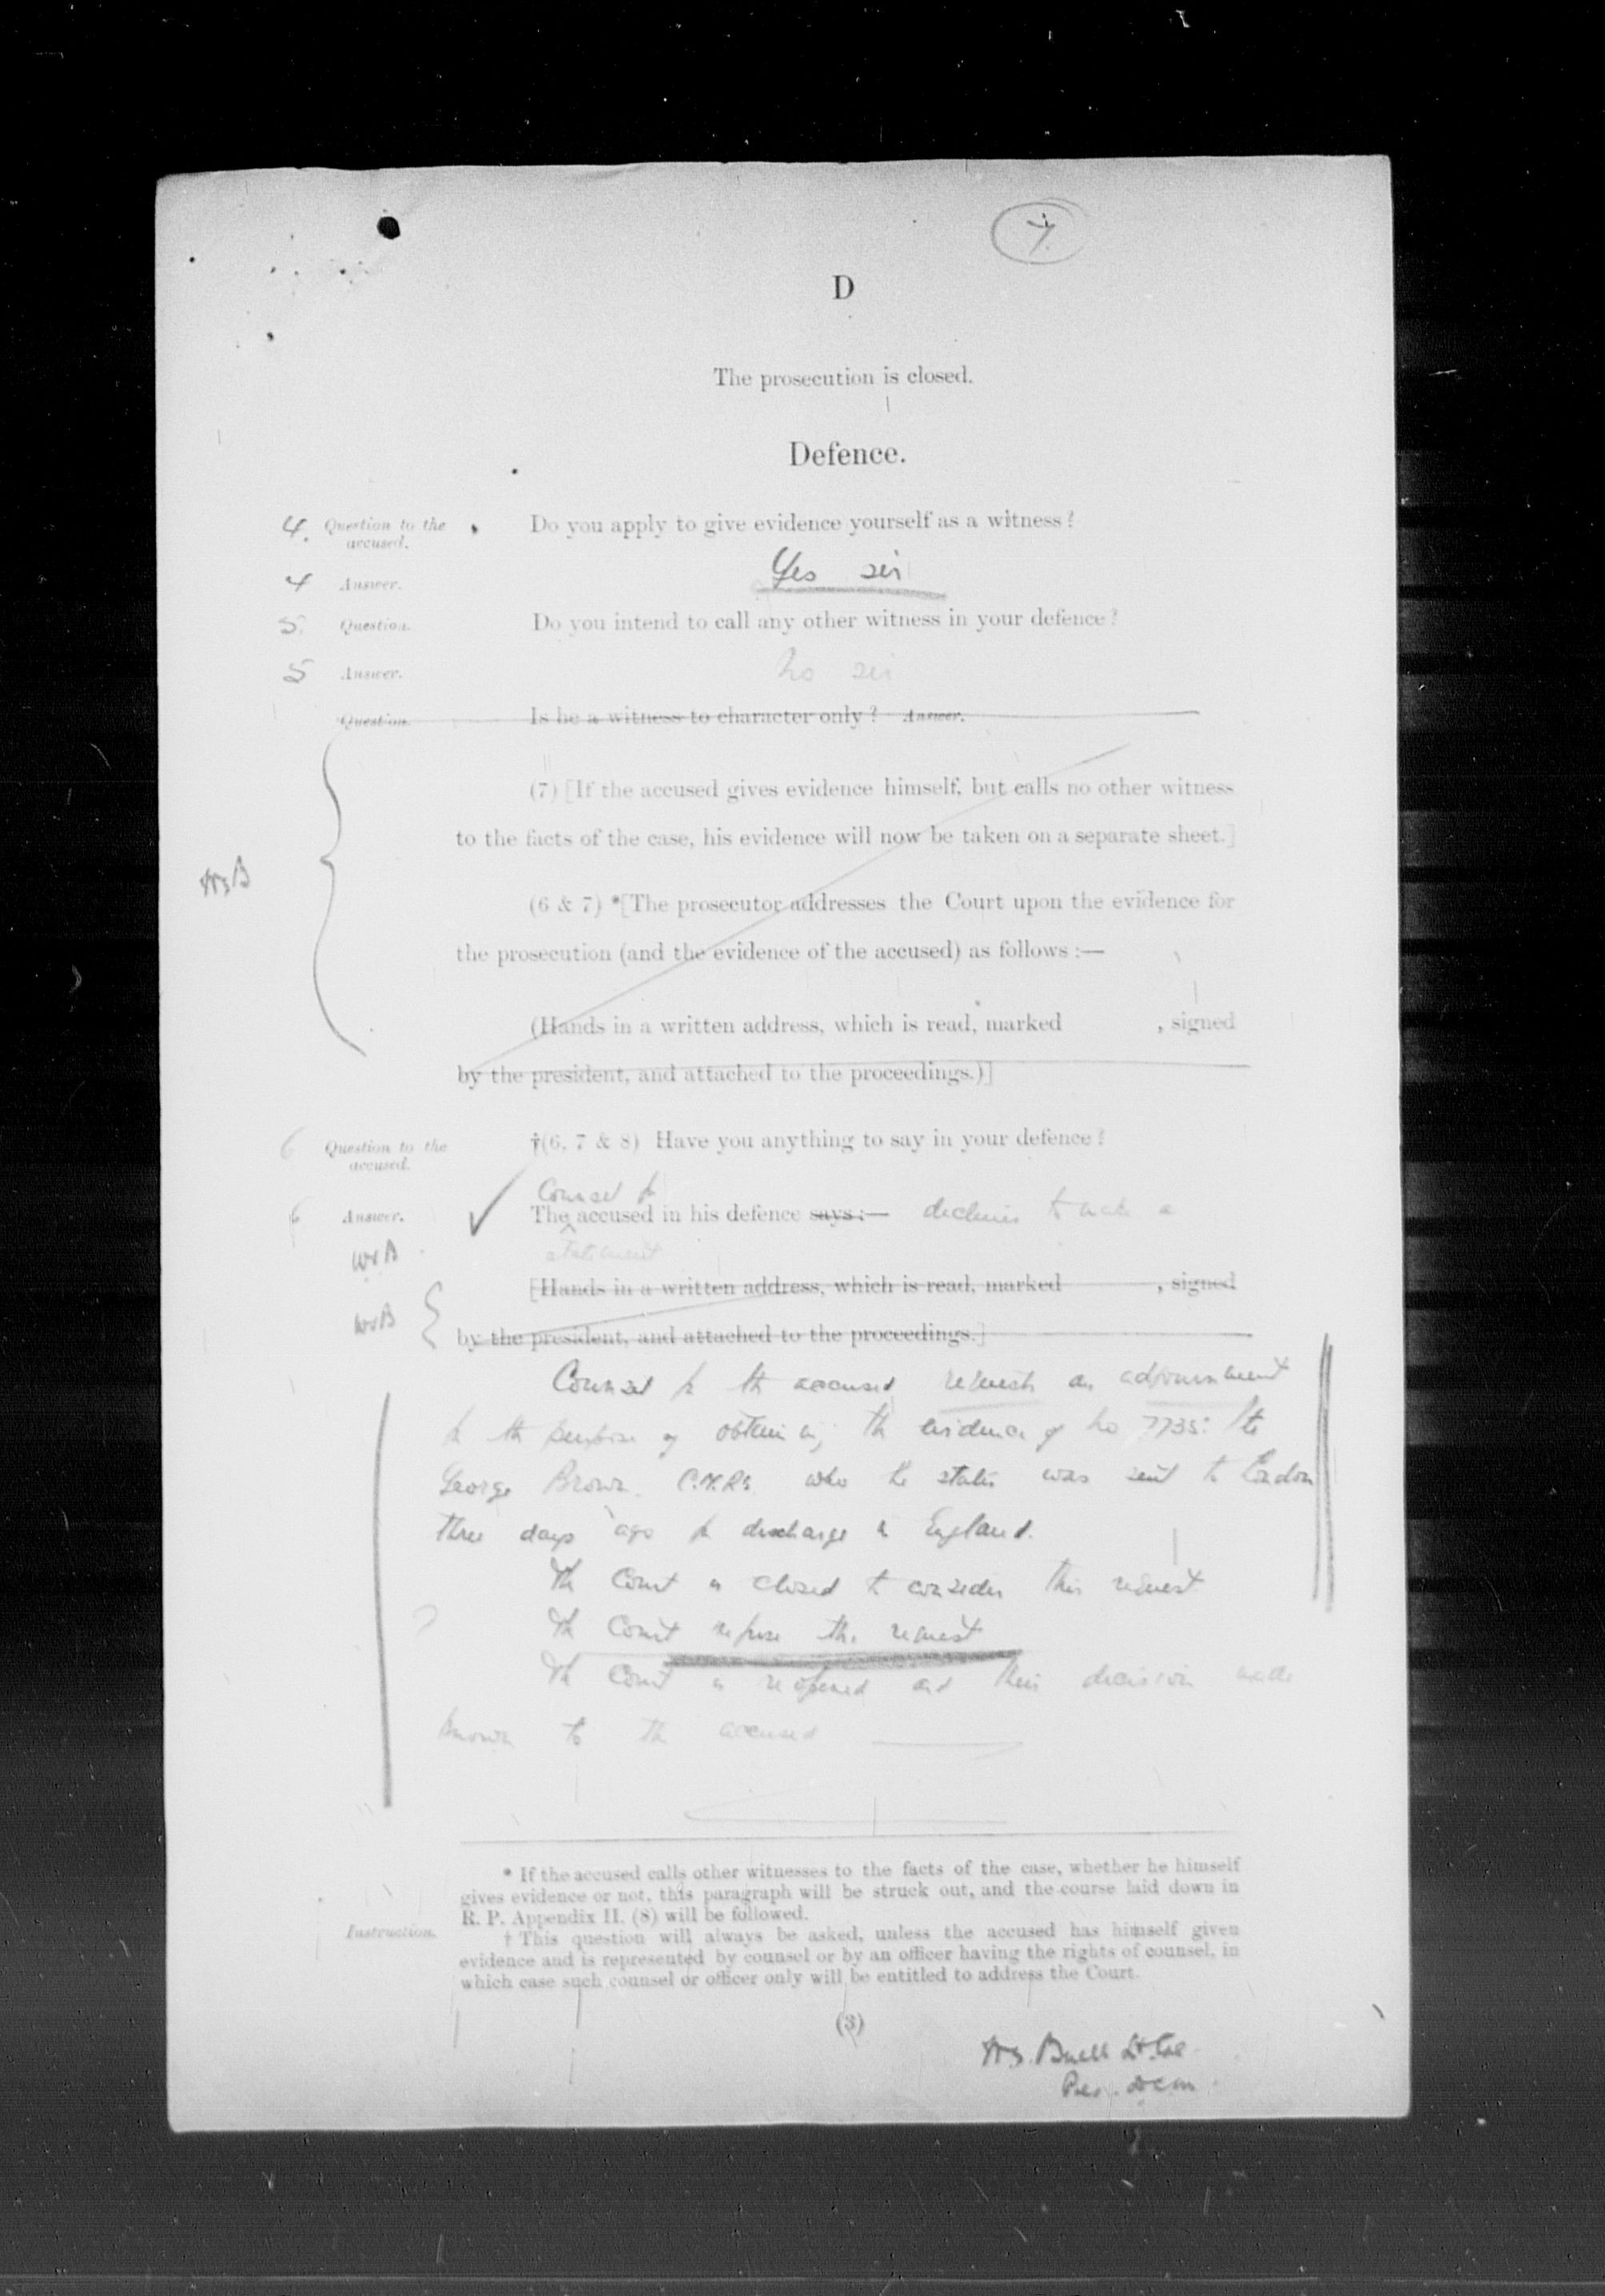 7.
D
The prosecution is closed.
Defence.
4. Question to the accused. Do you apply to give evidence yourself as a witness?
4 Answer. Yes sir
5. Question. Do you intend to call any other witness in your defence?
5 Answer. No sir
Question. Is he a witness to character only? Answer.
(7) [If the accused gives evidence himself, but calls no other witness
to the facts of the case, his evidence will now be taken on a separate sheet.]
(6 & 7) *[The prosecutor addresses the Court upon the evidence for
the prosecution (and the evidence of the accused) as follows :—
(Hands in a written address, which is read, marked , signed
by the president, and attached to the proceedings.)]
6 Question to the accused. †(6, 7 & 8) Have you anything to say in your defence?
Counsel for
6 Answer. The accused in his defence says :— declines to make a
statement
[Hands in a written address, which is read, marked , signed
by the president, and attached to the proceedings.]
Counsel for the accused requests an adjournment
for the purpose of obtaining the evidence of No 7735: Pte
George Brown. who he states was sent to London
three days ago for discharge in England.
The Court is closed to consider this request
The Court refuse the request
The Court is reopened and their decision made
known to the accused
* If the accused calls other witnesses to the facts of the case, whether he himself
gives evidence or not, this paragraph will be struck out, and the course laid down in
R. P. Appendix II. (8) will be followed.
Instruction.
† This question will always be asked, unless the accused has himself given
evidence and is represented by counsel or by an officer having the rights of counsel, in
which case such counsel or officer only will be entitled to address the Court.
(3)
W.S. Buell Lt. Col
Pres. DCM